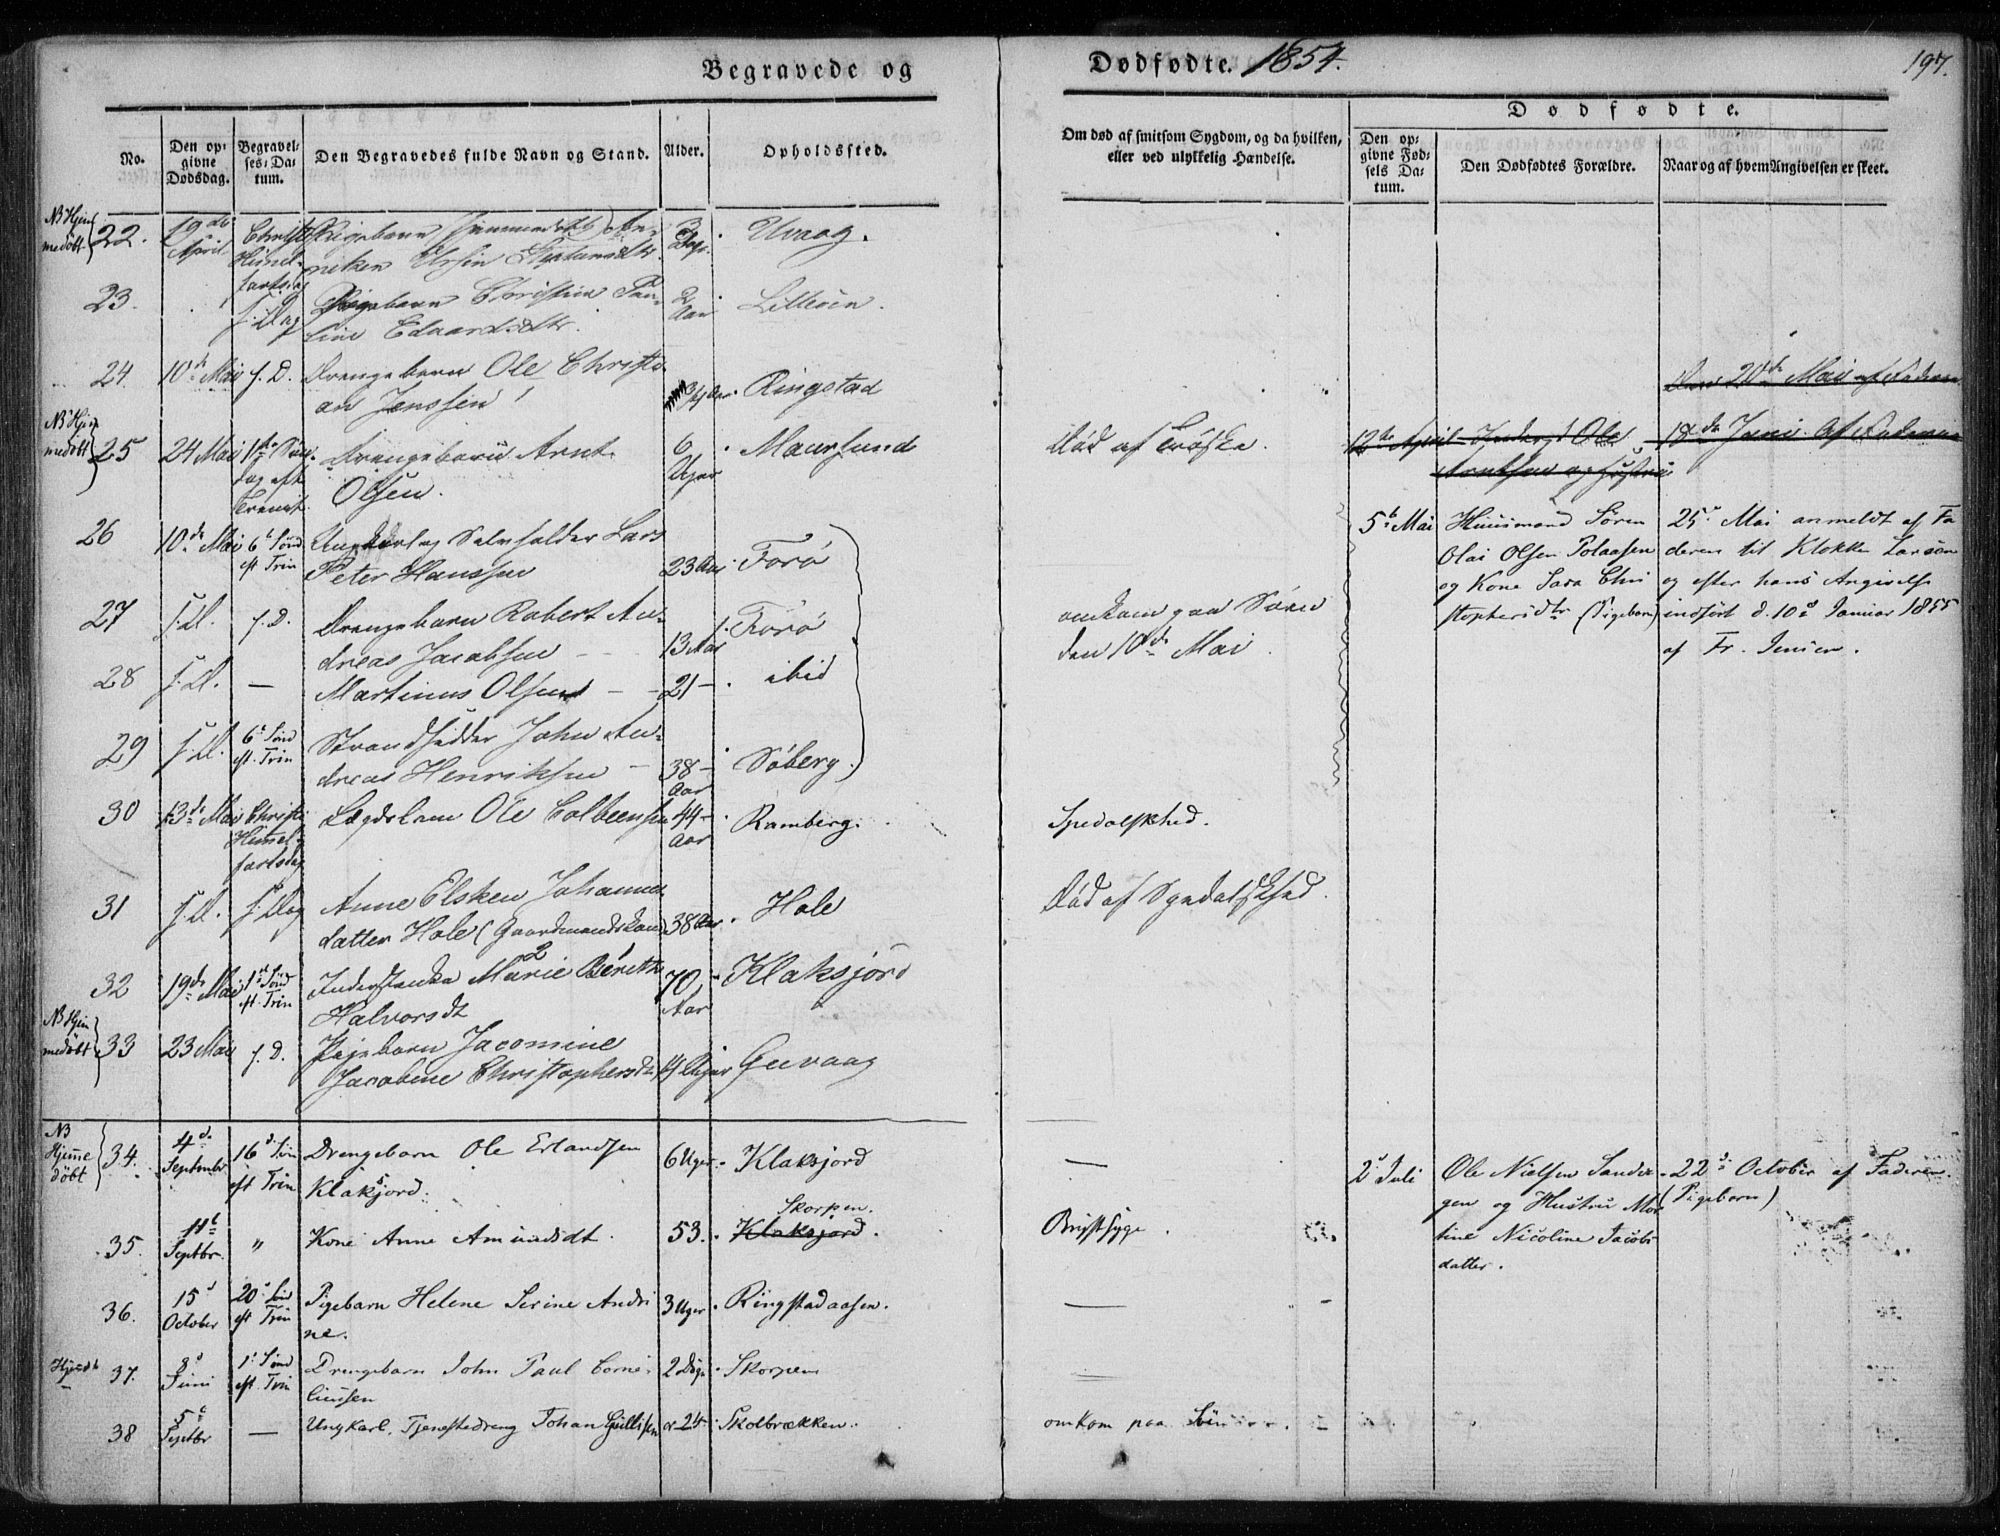 Begravede og
Dødfødte. 1854.
197.
No.
Den opgivne Dødsdag.
Begravelses-Datum.
Den Begravedes fulde Navn og Stand.
Alder.
Opholdssted.
Om død af smitsom Sygdom, og da hvilken,
eller ved ulykkelig Hændelse.
Dødfødte.
Den opgivne Fødsels Datum.
Den Dødfødtes Forældre.
Naar og af hvem Angivelsen er skeet.
NB Hjemmedøbt 22. 19de April Christi Himmelfartsdag Pigebarn An-
neken Ursin 3 Dage. Uvaag.
23. s. Dag Pigebarn Christine Pau-
line Edvardsdtr. 2 Aar Lilleøen.
24. 10de Mai s. D. Drengebarn Ole Christi-
an Jenssen Ringstad
20de Mai af Faderen
NB Hjemmedøbt 25 24 Mai Drengebarn Arnt
Olsen. 6 Uger Maursund Død af Trøske.
12te April Ole
Arntsen og Hustru
18de Juni af Faderen
26 10de Mai 6te Sønd eft Trin Ungkarl og Selvfolder Lars
Peter Hanssen 23 Aar Forø
5te Mai Huusmand Søren
Olai Olsen Polaasen
og Kone Sara Chri
stophersdtr (Pigebarn)
25de Mai anmeldt af Fa
deren til Klokker Larsen
og efter hans Angivelse
indført d. 10de Januar 1855
af Fr. Jensen.
27 s. D. s. D. Drengebarn Robert An-
dreas Jacobsen 13 Aar Forø
omkom paa Søen
den 10de Mai
28 s. D. — Martinus Olsen — 21 — ibid
29 s. D. 6te Sønd eft. Trin Strandsidder John An-
dreas Henriksen — 38 — Aar Søberg.
30 13de Mai Christi Himmelfartsdag Lægdslem Ole Colbeensen 44 — Aar Ramberg. Spedalskhed.
31 s. D. s. Dag Anne Elsken Johannes
datter Hole (Gaardmandskone 38 Aar Hole Død af Spedalskhed.
32 19de Mai 1ste Sønd eft Trin Inderstenke Marie Berith
Halvorsdt 70 Aar Klaksjord
NB Hjemmedøbt 33 23 Mai s. D. Pigebarn Jacomine
Jacobine Christophersdtr 14 Uger Guvaag
NB Hjemmedøbt 34. 4de September 16de Søn eft Trin Drengebarn Ole Erlandsen
Klaksjord. 6 Uger. Klaksjord —
2de Juli Ole Nielsen Sander
gen og Hustru Mor
tine Nicoline Jacobs
datter.
22de October af Faderen
(Pigebarn)
35. 11te Septbr. " Kone Anne Amundsdt. 53. Skorpen.
Klaksjord. Brystsyge.
36. 15de October 20de Sønd eft Trin Pigebarn Helene Serine Andri
ne. 3 Uger Ringstadaasen. —
Hjemdbt 37. 8de Juni 1ste Sønd eft. Trin Drengebarn John Paul Corne-
liussen 2 Døgn Skorpen —
38 5te Septbr — Ungkarl, Tjenestedreng Johan Gullisen 24 Skolbrækken. omkom paa Søen.